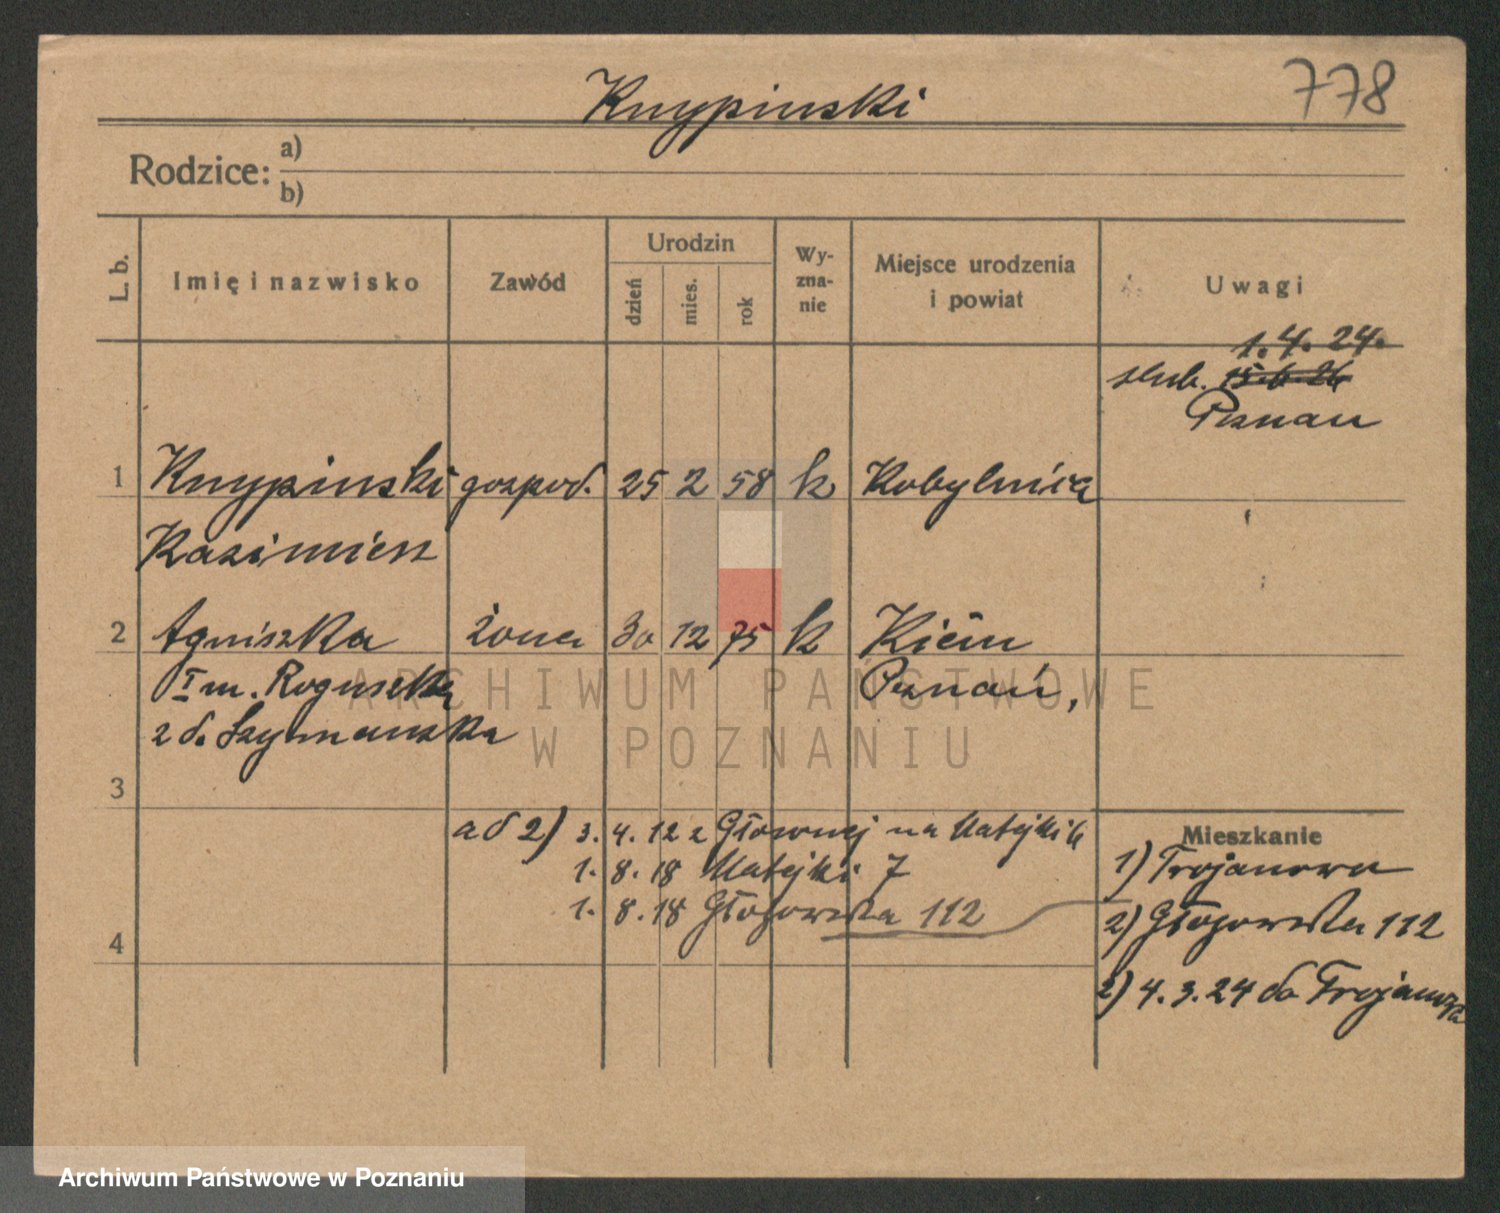 778
Knypinski
Rodzice: a)
b)
L. b.
Imię i nazwisko
Zawód
Urodzin
dzień
mies.
rok
Wy-
zna-
nie
Miejsce urodzenia
i powiat
Uwagi
1. 4. 24.
slub. 15.6.24
Poznan
1 Knypinski gospod. 25 2 58 k Kobylnica
Kazimierz
2 Agniszka żona 30 12 75 k Kicin
I m. Roguszka Poznań,
z d. Szymanska
ARCHIWUM PAŃSTWOWE
W POZNANIU
3
ad 2) 3. 4. 12 z Głownej na Matejki 6
1. 8. 18 Matejki 7
1. 8. 18 Głogowska 112
4
Mieszkanie
1) Trojanowa
2) Głogowska 112
2) 4. 3. 24 do Trojanowa
Archiwum Państwowe w Poznaniu